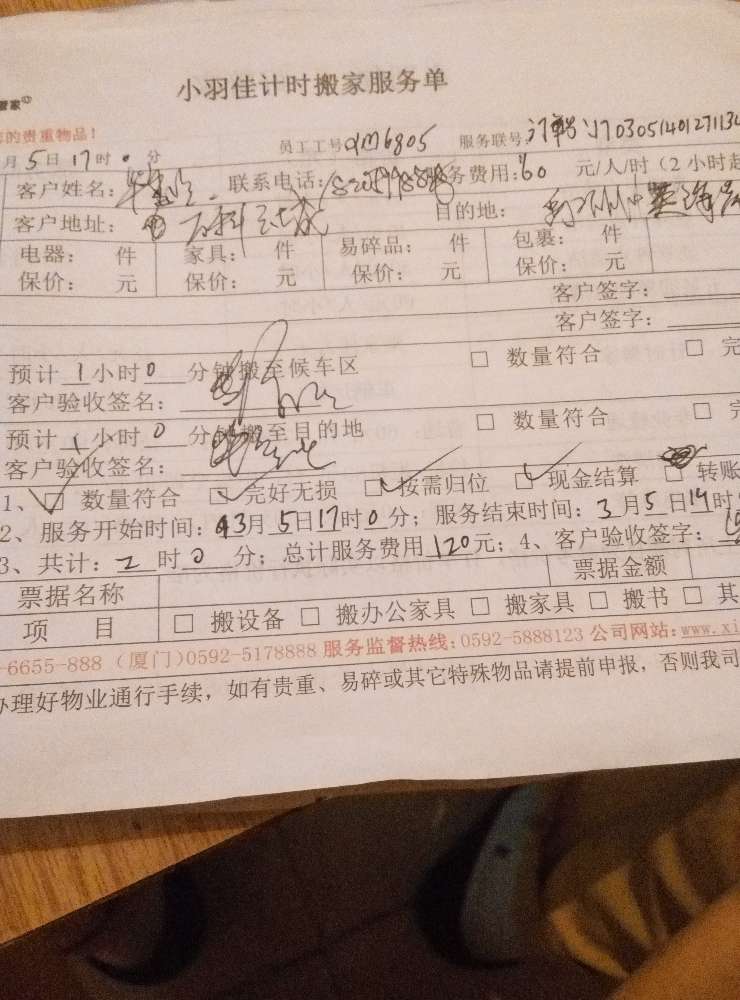 小羽佳计时搬家服务单
管家
的贵重物品！
员工工号 XM6805 服务联号：
月5日17时0分
客户姓名： 联系电话： 服务费用：60 元/人/时（2小时起
客户地址： 万科 目的地：
电器： 件 家具： 件 易碎品： 件 包裹： 件
保价： 元 保价： 元 保价： 元 保价： 元
客户签字：
客户签字：
预计1小时0分钟搬至候车区 □ 数量符合 □ 完
客户验收签名：
预计1小时0分钟搬至目的地 □ 数量符合 □ 完
客户验收签名：
1、□ 数量符合 □ 完好无损 □ 按需归位 □ 现金结算 □ 转账
2、服务开始时间：3月5日17时0分；服务结束时间：3月5日19时
3、共计：2时0分；总计服务费用120元；4、客户验收签字：
票据名称 票据金额
项 目 □ 搬设备 □ 搬办公家具 □ 搬家具 □ 搬书 □ 其
-6655-888（厦门）0592-5178888 服务监督热线：0592-5888123 公司网站：www.xi
办理好物业通行手续，如有贵重、易碎或其它特殊物品请提前申报，否则我司